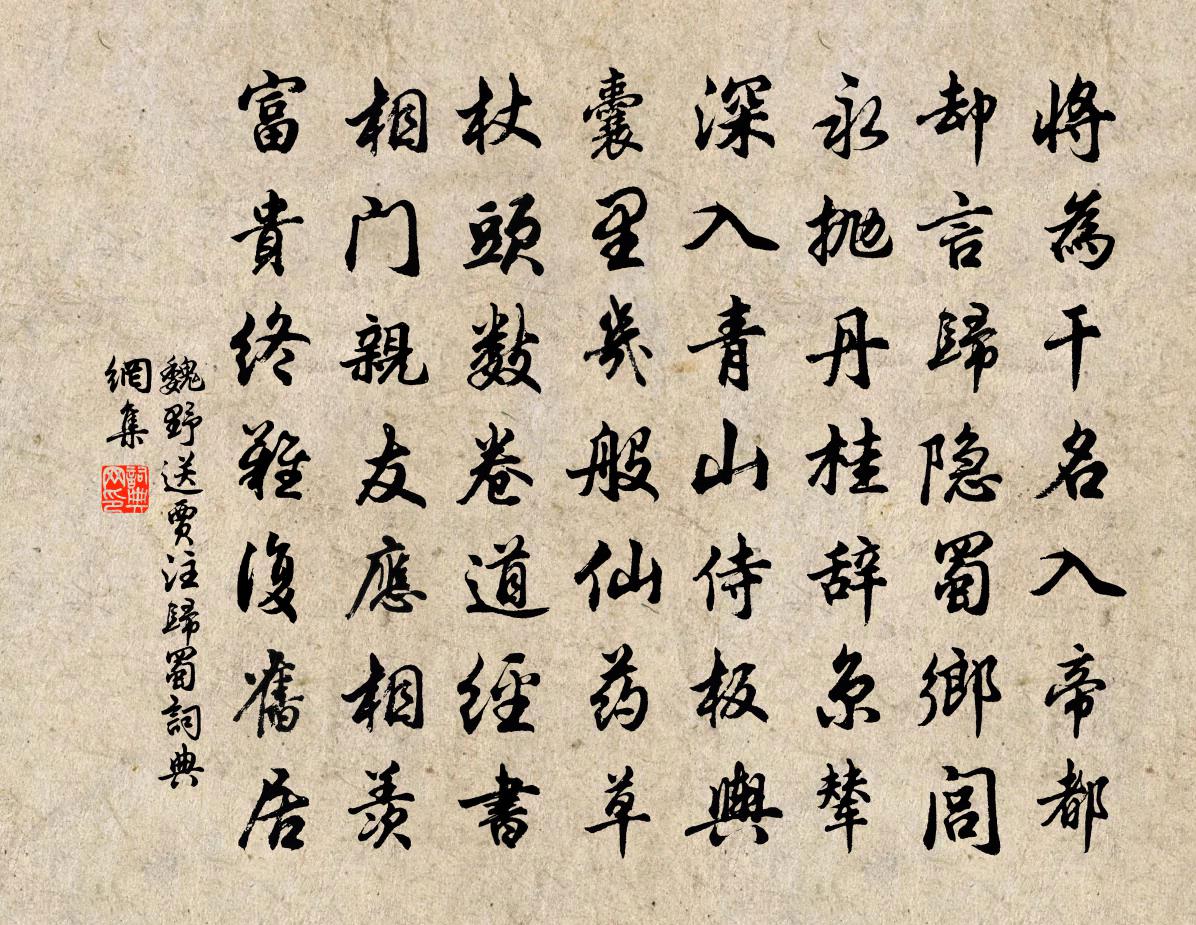 將為干名入帝都
却言歸隐蜀鄉閭
永抛丹桂辞京輦
深入青山侍板輿
囊里幾般仙药草
杖頭数卷道經書
相門親友應相羨
富貴终難復舊居
魏野送贾注歸蜀詞典
網集
詞典
网印